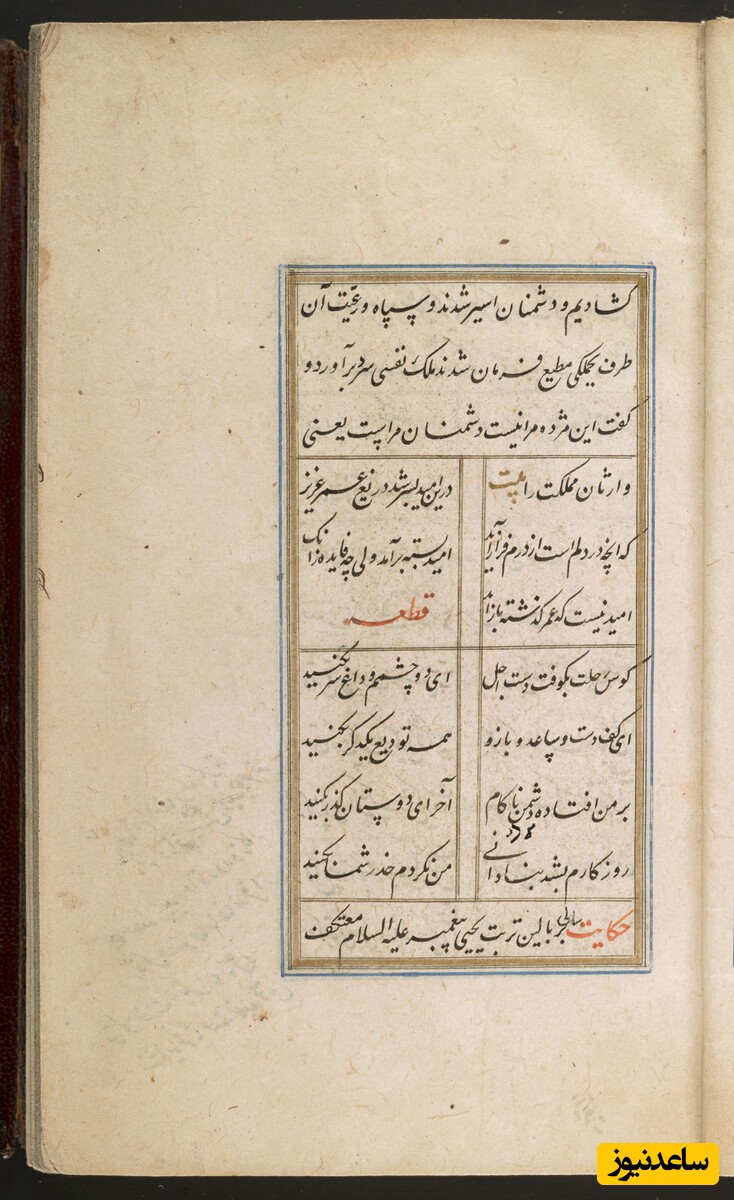 کشادیم و دشمنان اسیر شدند و سپاه و رعیّت آن
طرف بجملکی مطیع فرمان شدند ملک نفسی سرد برآورد و
کفت این مژده مرا نیست دشمنان مراست یعنی
وارثان مملکت را بیت درین امید بسر شد دریغ عمر عزیز
که انچه در دلم است از درم فراز آید امید بسته برآمد ولی چه فایده زانک
امید نیست که عمر کذشته باز آید قطعه
کوس رحلت بکوفت دست اجل ای دو چشمم وداع سر بکنید
ای کف دست و ساعد و بازو همه تودیع یکدکر بکنید
بر من افتاده دشمن ناکام آخر ای دوستان کذر بکنید
روزکارم بشد بنادانی من نکردم حذر شما بکنید
حکایت سالی بر بالین تربت یحیی پیغمبر علیه السلام معتکف
ساعدنیوز